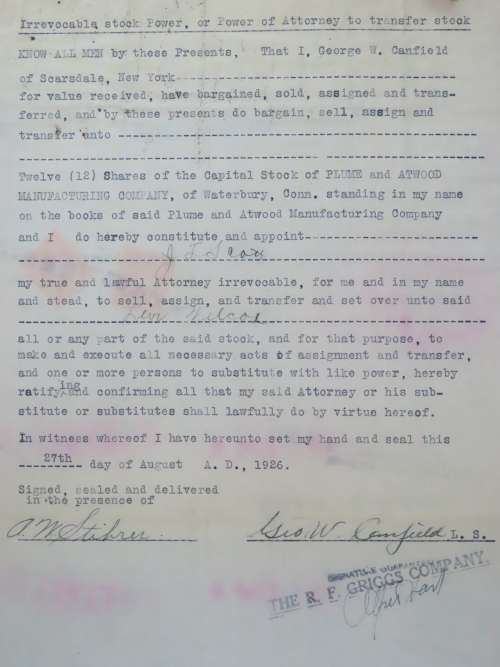 Irrevocable stock Power, or Power of Attorney to transfer stock
KNOW ALL MEN by these Presents, That I, George W. Canfield
of Scarsdale, New York
for value received, have bargained, sold, assigned and trans-
ferred, and by these presents do bargain, sell, assign and
transfer unto
Twelve (12) Shares of the Capital Stock of PLUME and ATWOOD
MANUFACTURING COMPANY, of Waterbury, Conn. standing in my name
on the books of said Plume and Atwood Manufacturing Company
and I do hereby constitute and appoint
my true and lawful Attorney irrevocable, for me and in my name
and stead, to sell, assign, and transfer and set over unto said
Levi Wilcox
all or any part of the said stock, and for that purpose, to
make and execute all necessary acts of assignment and transfer,
and one or more persons to substitute with like power, hereby
ratifying and confirming all that my said Attorney or his sub-
stitute or substitutes shall lawfully do by virtue hereof.
In witness whereof I have hereunto set my hand and seal this
27th day of August A. D., 1926.
Signed, sealed and delivered
in the presence of
Geo. W. Canfield L. S.
SIGNATURE GUARANTEED
THE R. F. GRIGGS COMPANY.